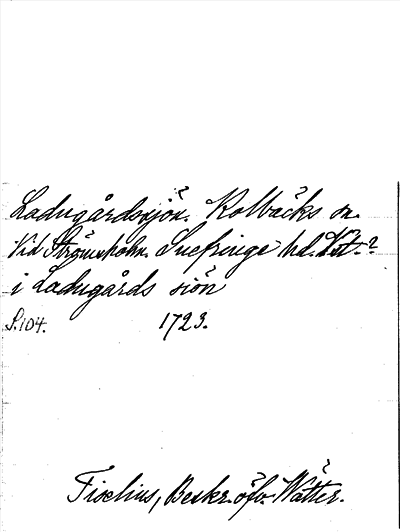 Ladugårdssjön. Kolbäcks sn.
Vid Strömsholm. Snefringe hd. Vst.?
i Ladugårds siön
S.104. 1723.
Fiselius, Beskr. öfv. Wätter.